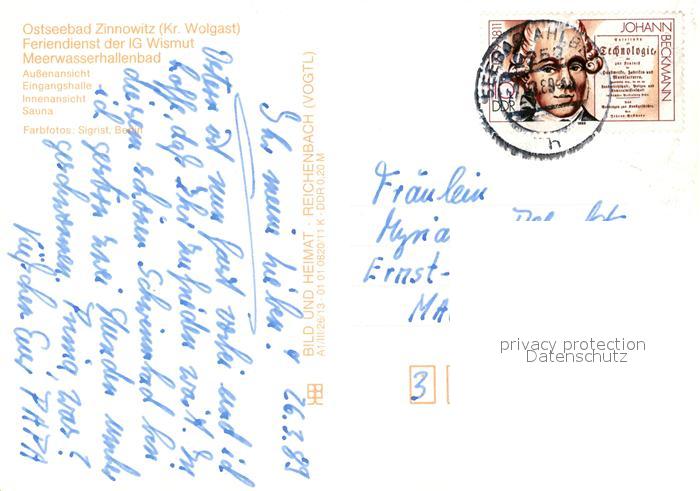 Ostseebad Zinnowitz (Kr. Wolgast)
Feriendienst der IG Wismut
Meerwasserhallenbad
Außenansicht
Eingangshalle
Innenansicht
Sauna
Farbfotos: Sigrist, Berlin
BILD UND HEIMAT · REICHENBACH (VOGTL)
A1/III/26/13 · 01 01 0620/11 K · DDR 0,20 M
Ihr meine Lieben! 26.3.89
Ostern ist nun fast vorbei und ich
hoffe, daß Ihr zufrieden wart. In
diesem schönen Schwimmbad bin
ich gestern zwei Stunden
geschwommen. Prima, was?
Küßchen Euer PAPA
JOHANN
BECKMANN
1811
Technologie
10
DDR
h
Fräulein
Myria
Ernst-
MA
privacy protection
Datenschutz
3